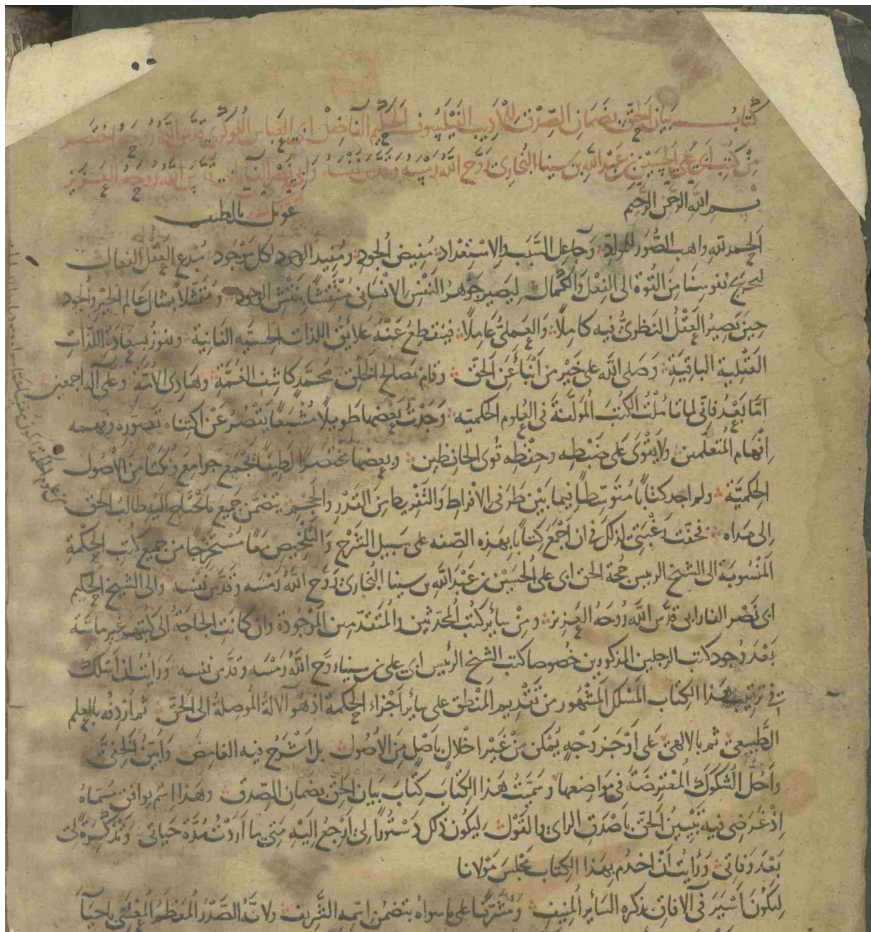 كتاب بيان الحق بضمان الصدق للاديب الفيلسوف الحكيم الفاضل ابي العباس اللوكري قدس الله روحه اختصره
من كتب ابي علي الحسين بن عبد الله بن سينا البخاري روح الله رمسه وقدس نفسه وابي نصر الفارابي قدس الله روحه العزيز
بسم الله الرحمن الرحيم
الحمد لله واهب الصور للمواد وجاعل السبب والاستعداد مفيض الجود ومفيد الوجود لكل موجود مبدع العقل الفعال
ليخرج نفوسنا من القوة الى الفعل والكمال ليصير جوهر النفس الانساني منتقشا بنقش الوجود ومتمثلا بمثال عالم الخير والجود
حين يصير العقل النظري فيه كاملا والعملي عاملا فينقطع عنه علايق اللذات الحسية الفانية ويفوز بسعادة اللذات
العقلية الباقية وصلى الله على خير من انبأ عن الحق وقام بمصالح الخلق محمد كاشف الغمة وهادي الامة وعلى آله اجمعين
اما بعد فاني لما تأملت الكتب المؤلفة في العلوم الحكمية وجدت بعضها طويلا مشبعا يقصر عن اكتناه تصوره وفهمه
افهام المتعلمين ولا يقوى على ضبطه وحفظه قوى الحافظين وبعضها مختصرا لطيفا يجمع جوامع ونكتا من الاصول
الحكمية ولم اجد كتابا متوسطا فيما بين طرفي الافراط والتفريط من القدر والحجم يتضمن جميع ما يحتاج اليه طالب الحق
الى مداه فحققت رغبتي لذلك في ان اجمع كتابا بهذه الصفة على سبيل الشرح والتلخيص معا مستخرجا من جميع كتب الحكمة
المنسوبة الى الشيخ الرييس حجة الحق ابي علي الحسين بن عبد الله بن سينا البخاري روح الله رمسه وقدس نفسه والى الشيخ الحكيم
ابي نصر الفارابي قدس الله روحه العزيز ومن سائر كتب المحدثين والمتقدمين الموجودة وان كانت الحاجة الى كتبهم غير ماسة
بعد وجود كتب الرجلين المذكورين خصوصا كتب الشيخ الرئيس ابي علي بن سينا روح الله رمسه وقدس نفسه ورأيت ان اسلك
في ترتيب هذا الكتاب المسلك المشهور من تقديم المنطق على سائر اجزاء الحكمة اذ هو آلالة الموصلة الى الحق ثم اردفه بالعلم
الطبيعي ثم بالالهي على اوجز وجه يمكن من غير اخلال باصل من الاصول بل اشرح فيه الغامض وابين الحق
واحل الشكوك المعترضة في مواضعها وسميت هذا الكتاب كتاب بيان الحق بضمان الصدق وهذا اسم يوافق مسماه
اذ غرضي فيه تبيين الحق باصدق الراي والقول ليكون ذلك دستورا لي ارجع اليه متى ما اردت مدة حياتي وتذكرة لي
بعد وفاتي ورأيت ان اخدم بهذا الكتاب مجلس مولانا
ليكون اسير في الآفاق بذكره الساير المنيف ومشرفا على ما سواه بتضمن اسمه الشريف ولانه الصدر المعظم المعتني باحيا